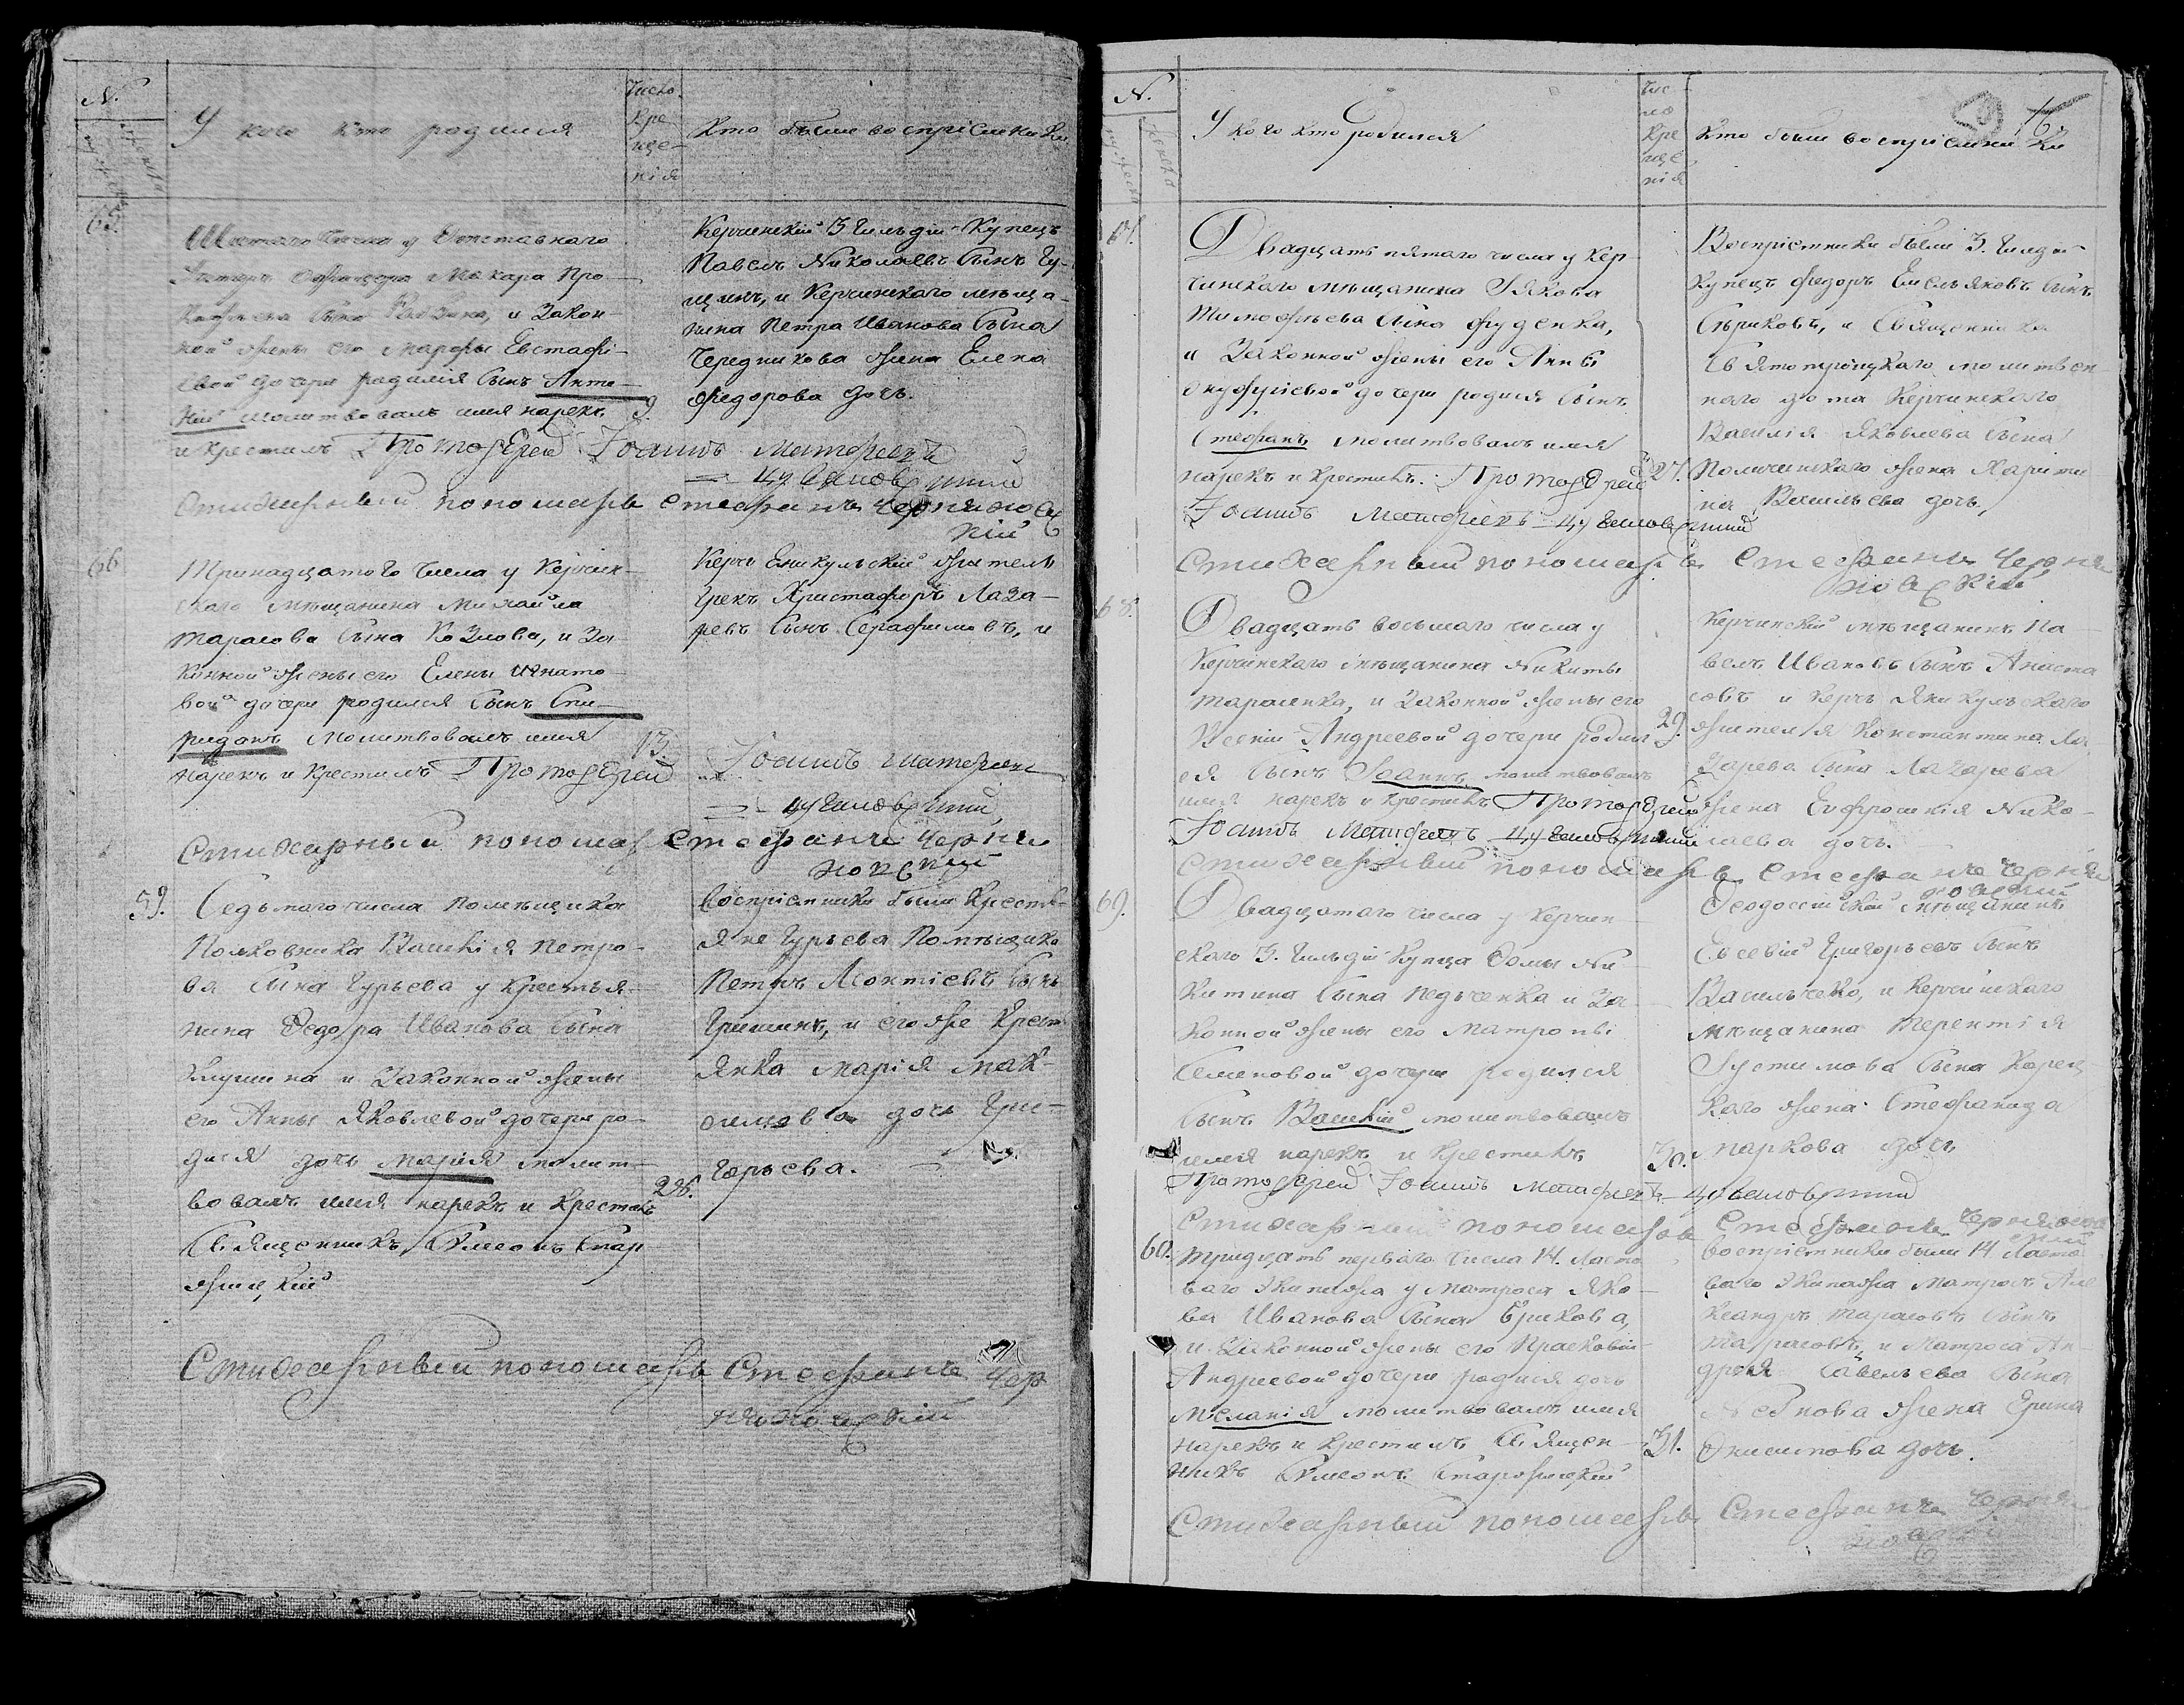 N.
У кого кто родился
Число Кре-
ще-
нія
Кто были воспріемники
мужеска
женска
65.
Шестаго числа у Отставнаго
Унтеръ Офицера Макара Про-
кофьева сына и Закон-
ной жены его Марфы Евстафі-
евой дочери родился сынъ Анто-
ній молитвовалъ имя нарекъ 9.
и крестилъ Протоіерей Іоаннъ Матфеевъ
Керчинскій 3 Гильдіи Купецъ
Павелъ Николаевъ сынъ Гу-
щинъ, и Керчинскаго мѣща-
нина Петра Иванова сына
Чередникова жена Елена
Федорова дочь.
Стихарный пономарь Стефанъ Черняхов-
скій
66
Тринадцатого числа у Керчин-
скаго мѣщанина Михайла
Тарасова сына Козлова, и За-
конной жены его Елены Игнато-
вой дочери родился сынъ Спи-
ридонъ молитвовалъ имя 13.
нарекъ и крестилъ Протоіерей Іоаннъ Матфеевъ
Керчь Еникульскій житель
Грекъ Христофоръ Лаза-
ревъ сынъ Серафимовъ, и
Стихарный пономарь Стефанъ Черня-
ховскій
59.
Седьмаго числа помѣщика
Полковника Василія Петро-
ва сына Гурьева у крестья-
нина Федора Иванова сына
и законной жены
его Анны Яковлевой дочери ро-
дися дочь Марія молит-
вовалъ имя нарекъ и крестилъ 28.
Священникъ Симеонъ Стар-
жицкій
воспріемники были крестья-
не Гурьева Помѣщика
Петръ Леонтіевъ сынъ
Гришинъ, и его же крест-
янка Марія Мак-
симова дочь Гри-
горьева.
Стихарный пономарь Стефанъ Чер-
няховскій
N.
мужеска
женска
У кого кто родился
Чис-
ло
Кре
ще
нія
Кто были воспріемники
67.
Двадцать пятаго числа у Кер-
чинскаго мѣщанина Якова
Тимофѣева сына Фуденка,
и Законной жены его Анны
Онуфріевой дочери родися сынъ
Стефанъ молитвовалъ имя
нарекъ и крестилъ. Протоіерей 27.
Іоаннъ Матфеевъ
Воспріемники были 3. Гилдіи
Купецъ Федоръ Емельяновъ сынъ
Сѣриковъ, и Священника
Святотроицкаго молитвен-
наго дома Керчинскаго
Василія Яковлева сына
жена Харити-
на Васильева дочь,
Стихарный пономарь Стефанъ Черня-
ховскій
68.
Двадцать восьмаго числа у
Керчинскаго мѣщанина Никиты
Тарасенка, и Законной жены его
Ксеніи Андреевой дочери родил- 29.
ся сынъ Іоаннъ молитвовалъ
имя нарекъ и крестилъ Протоіерей
Іоаннъ Матфеевъ
Керчинскій мѣщанинъ Па-
велъ Ивановъ сынъ Анаста-
совъ и Керчь Яникульскаго
жителя Константина Ла-
зарева сына Лазарева
жена Евфросинія Нико-
лаева дочь.
Стихарный пономарь Стефанъ Черня-
ховскій
69.
Двадцатаго числа у Керчин-
скаго 3. Гильдіи Купца Фомы Ни-
китина сына Педченка и За-
конной жены его Матроны
Семеновой дочери родился
сынъ Василій молитвовалъ
имя нарекъ и крестилъ 30.
Протоіерей Іоаннъ Матфеевъ
Феодосійской мѣщанинъ
Евсевій Григорьевъ сынъ
Васильченко, и Керчинскаго
мѣщанина Терентія
Устимова сына Корец-
каго жена Стефанида
Маркова дочь
Стихарный пономарь Стефанъ Черняхов-
скій
60.
Тридцать перваго числа 14. Ласто-
ваго Экипажа у матроса Яко-
ва Иванова сына Брикова,
и Законной жены его Прасковіи
Андреевой дочери родися дочь
Меланія молитвовалъ имя
нарекъ и крестилъ Священ- 31.
никъ Симеонъ Старжицкій
воспріемники были 14 Ласто-
ваго Экипажа матросъ Але-
ксандръ Тарасовъ сынъ
Тарасовъ, и матроса Ан-
дрея Савельева сына
жена Ерина
Онисимова дочь.
Стихарный пономарь Стефанъ Черня-
ховскій